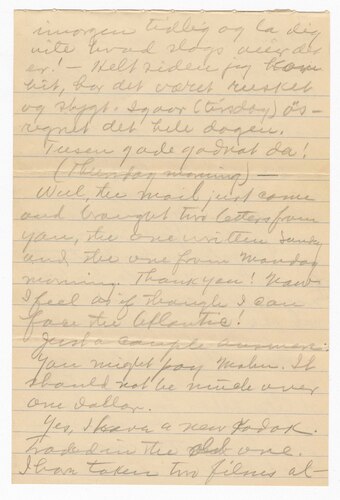 imorgen tidlig og la dig
vite hvad slags veir der
er! — Helt siden jeg kom
hit, har det været rusket
og stygt. Igaar (tirsdag) øs-
regnet det hele dagen.
Tusen gode godnat da!
(Thursday morning) —
Well, the mail just came
and brought two letters from
you, the one written Sunday
and the one from Monday
morning. Thank you! Now
I feel as if though I can
face the Atlantic!
Just a couple answers:
You might pay Mabu. It
should not be much over
one dollar.
Yes, I have a new Kodak.
Traded in the old one.
I have taken two films al-